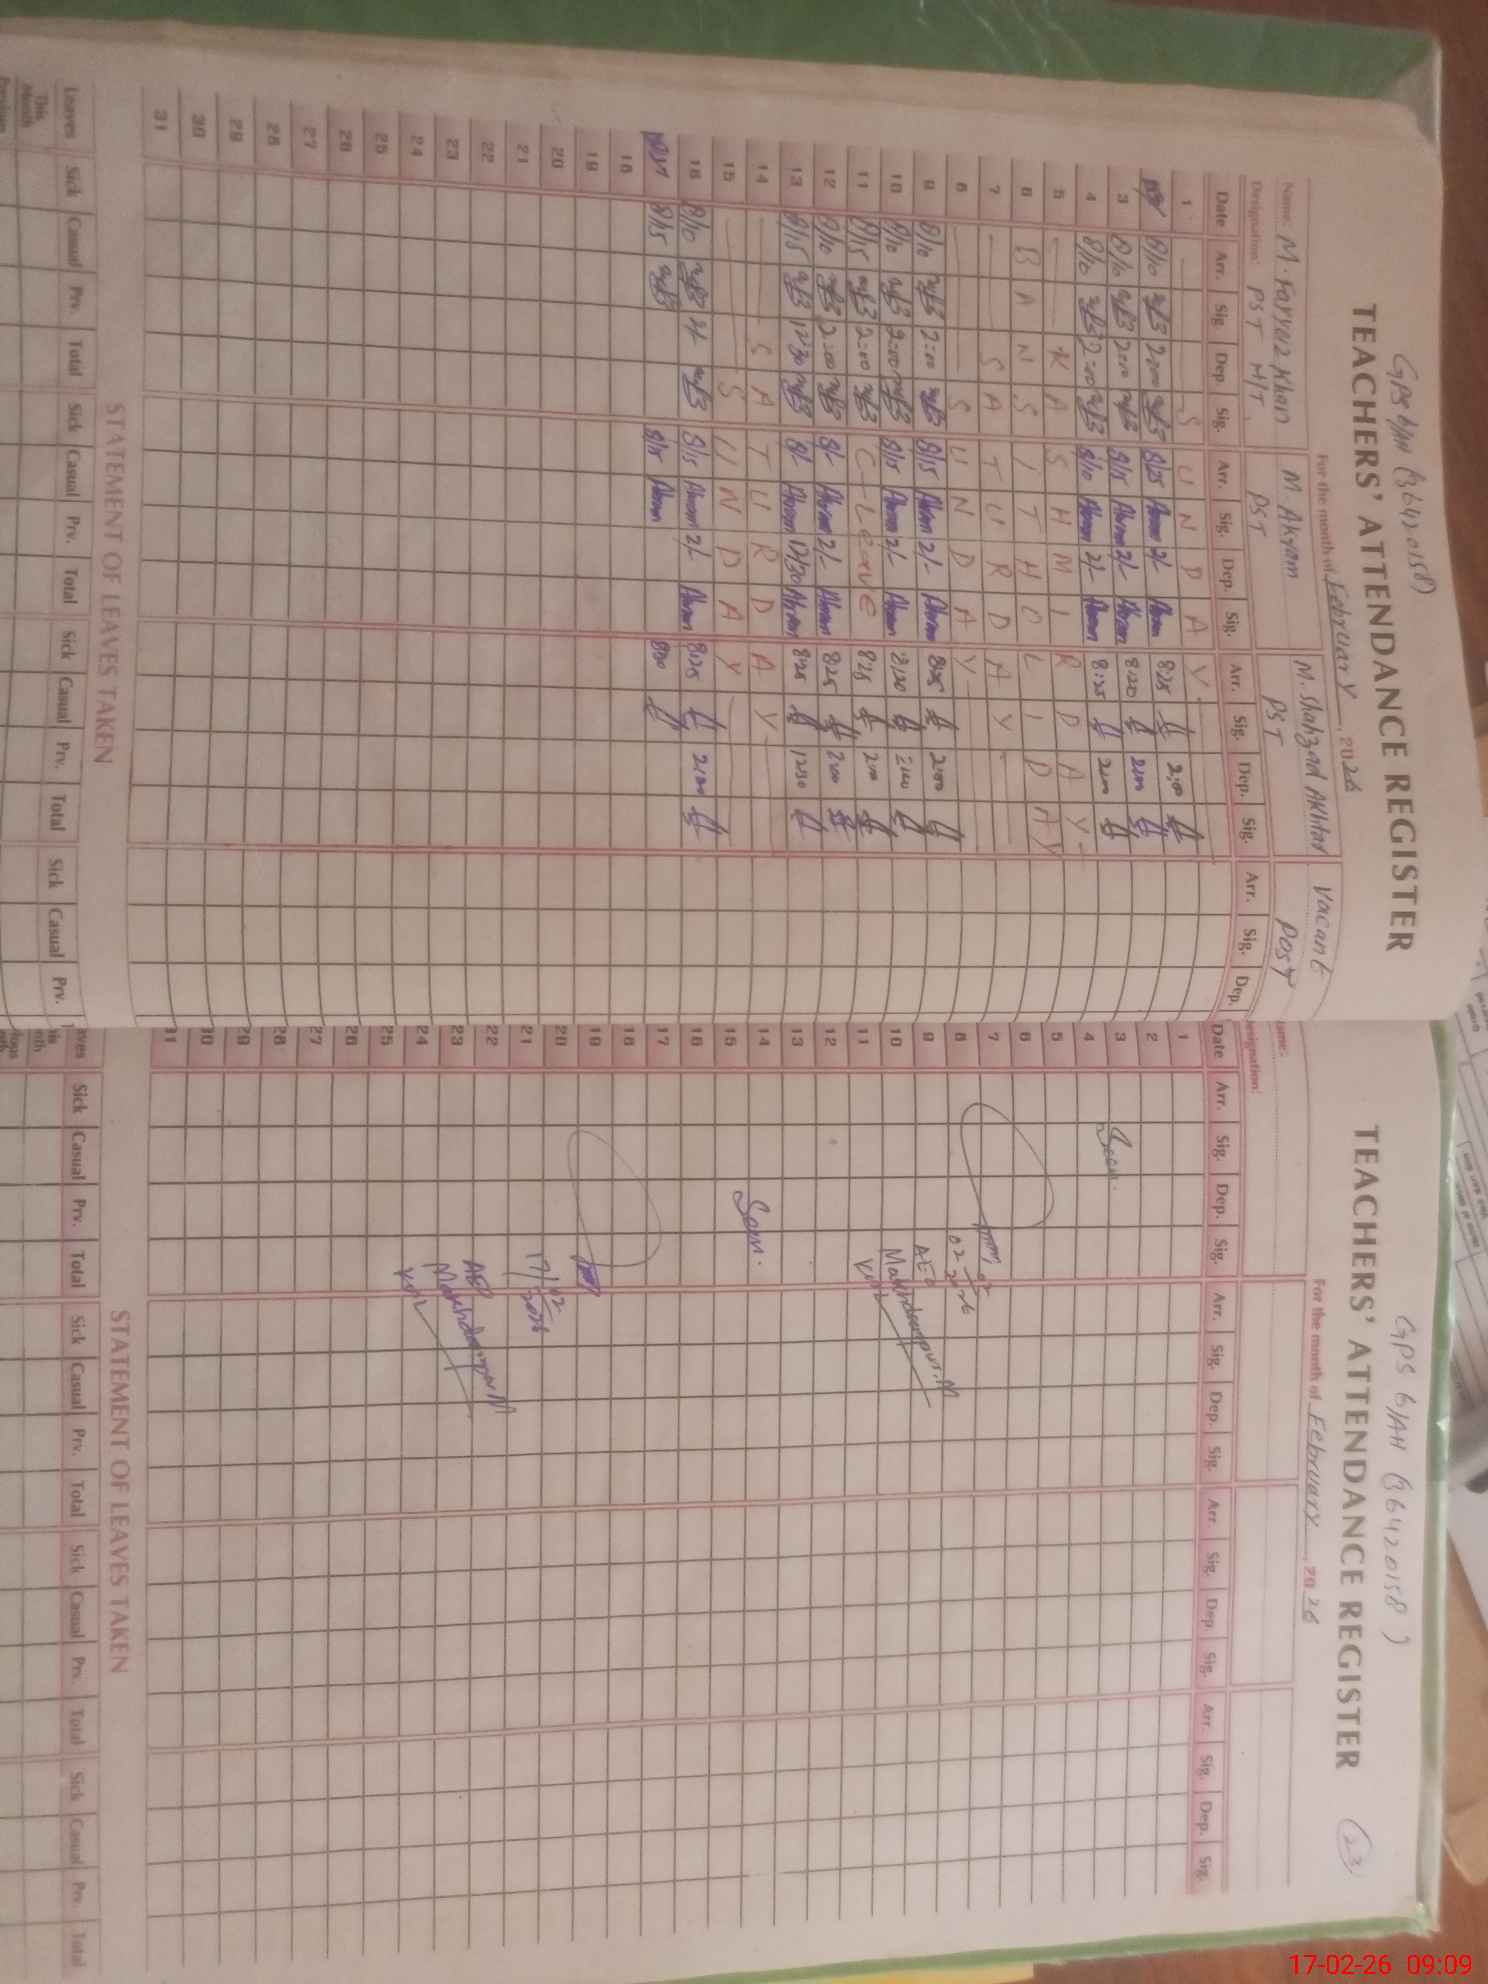 GPS 61AH (36420158)
TEACHERS' ATTENDANCE REGISTER
For the month of February, 2026
Name: M. Faryaz Khan M. Akram M. Shahzad Akhtar Vacant
Designation: PST H/T, PST PST Post
Date Arr. Sig. Dep. Sig. Arr. Sig. Dep. Sig. Arr. Sig. Dep. Sig. Arr. Sig. Dep.
1 S U N D A Y
8/10 2:00 8/25 Akram 2/- Akram 8:25 2:00
3 8/10 2:00 8/15 Akram 2/- Akram 8:20 2:00
4 8/10 2:00 8/10 Akram 2/- Akram 8:25 2:00
5 K A S H M I R D A Y
6 B A N S I T H O L I D A Y
7 S A T U R D A Y
8 S U N D A Y
9 8/10 2:00 8/15 Akram 2/- Akram 8:25 2:00
10 8/10 2:00 8/15 Akram 2/- Akram 8:20 2:00
11 8/15 2:00 C-Leave 8:25 2:00
12 8/10 2:00 8/- Akram 2/- Akram 8:25 2:00
13 8/15 12:30 8/- Akram 12/30 Akram 8:25 12:30
14 S A T U R D A Y
15 S U N D A Y
16 8/10 2/- 8/15 Akram 2/- Akram 8:25 2:00
8/15 8/15 Akram 8:20
18
19
20
21
22
23
24
25
26
27
28
29
30
31
STATEMENT OF LEAVES TAKEN
Leaves Sick Casual Prv. Total Sick Casual Prv. Total Sick Casual Prv. Total Sick Casual Prv.
This Month
Previous
GPS 61AH (36420158)
TEACHERS' ATTENDANCE REGISTER
23
For the month of February, 2026
Name:
Designation:
Date Arr. Sig. Dep. Sig. Arr. Sig. Dep. Sig. Arr. Sig. Dep. Sig. Arr. Sig. Dep. Sig.
1
2
3 Seen.
4
5
6
7
8
9 AEO
10 Makhdoompur.M
11 KWL
12
13
14
15 Seen.
16
17
18
19
20
21 17/02/2026
22
23 AEO
24 Makhdoompur M
25 KWL
26
27
28
29
30
31
STATEMENT OF LEAVES TAKEN
Sick Casual Prv. Total Sick Casual Prv. Total Sick Casual Prv. Total Sick Casual Prv. Total
17-02-26 09:09